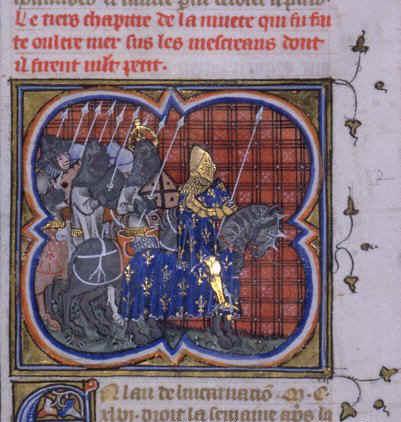 Le tiers chapitre de la muete qui fu fai
te oultre mer sus les mescreans dont
il firent mlt petit.
EN lan de lincarnatiõ .M.C.
xlvi. droit la semaine aps la